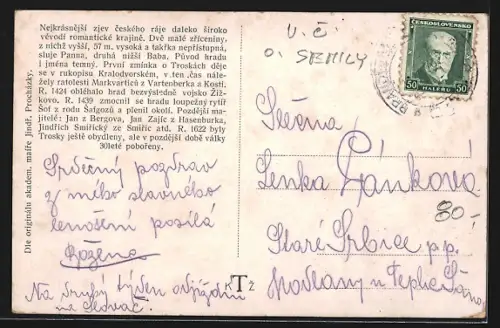 Nejkrásnější zjev českého ráje daleko široko
vévodí romantické krajině. Dvě malé zříceniny,
z nichž vyšší, 57 m. vysoká a takřka nepřístupná,
sluje Panna, druhá nižší Baba. Původ hradu
i jména temný. První zmínka o Troskách děje
se v rukopisu Kralodvorském, v ten čas nále-
žely ratolesti Markvarticů z Vartenberka a Kosti.
R. 1424 obléhalo hrad bezvýsledně vojsko Žiž-
kovo. R. 1439 zmocnil se hradu loupežný rytíř
Šof z rodu Šafgozů a plenil okolí. Pozdější ma-
jitelé: Jan z Bergova, Jan Zajíc z Hasenburka,
Jindřich Smiřický ze Smiřic atd. R. 1622 byly
Trosky ještě obydleny, ale v pozdější době války
30leté pobořeny.
Dle originálu akadem. malíře Jindř. Procházky.
Srdečný pozdrav
z mého slavného
lenošení posílá
Božena
Na druhý týden odjíždím
na Slovač.
KTŽ
V. Č.
O. SEMILY
ČESKOSLOVENSKO
50 HALÉŘŮ 50
Slečna
Lenka
Staré Srbice p.p.